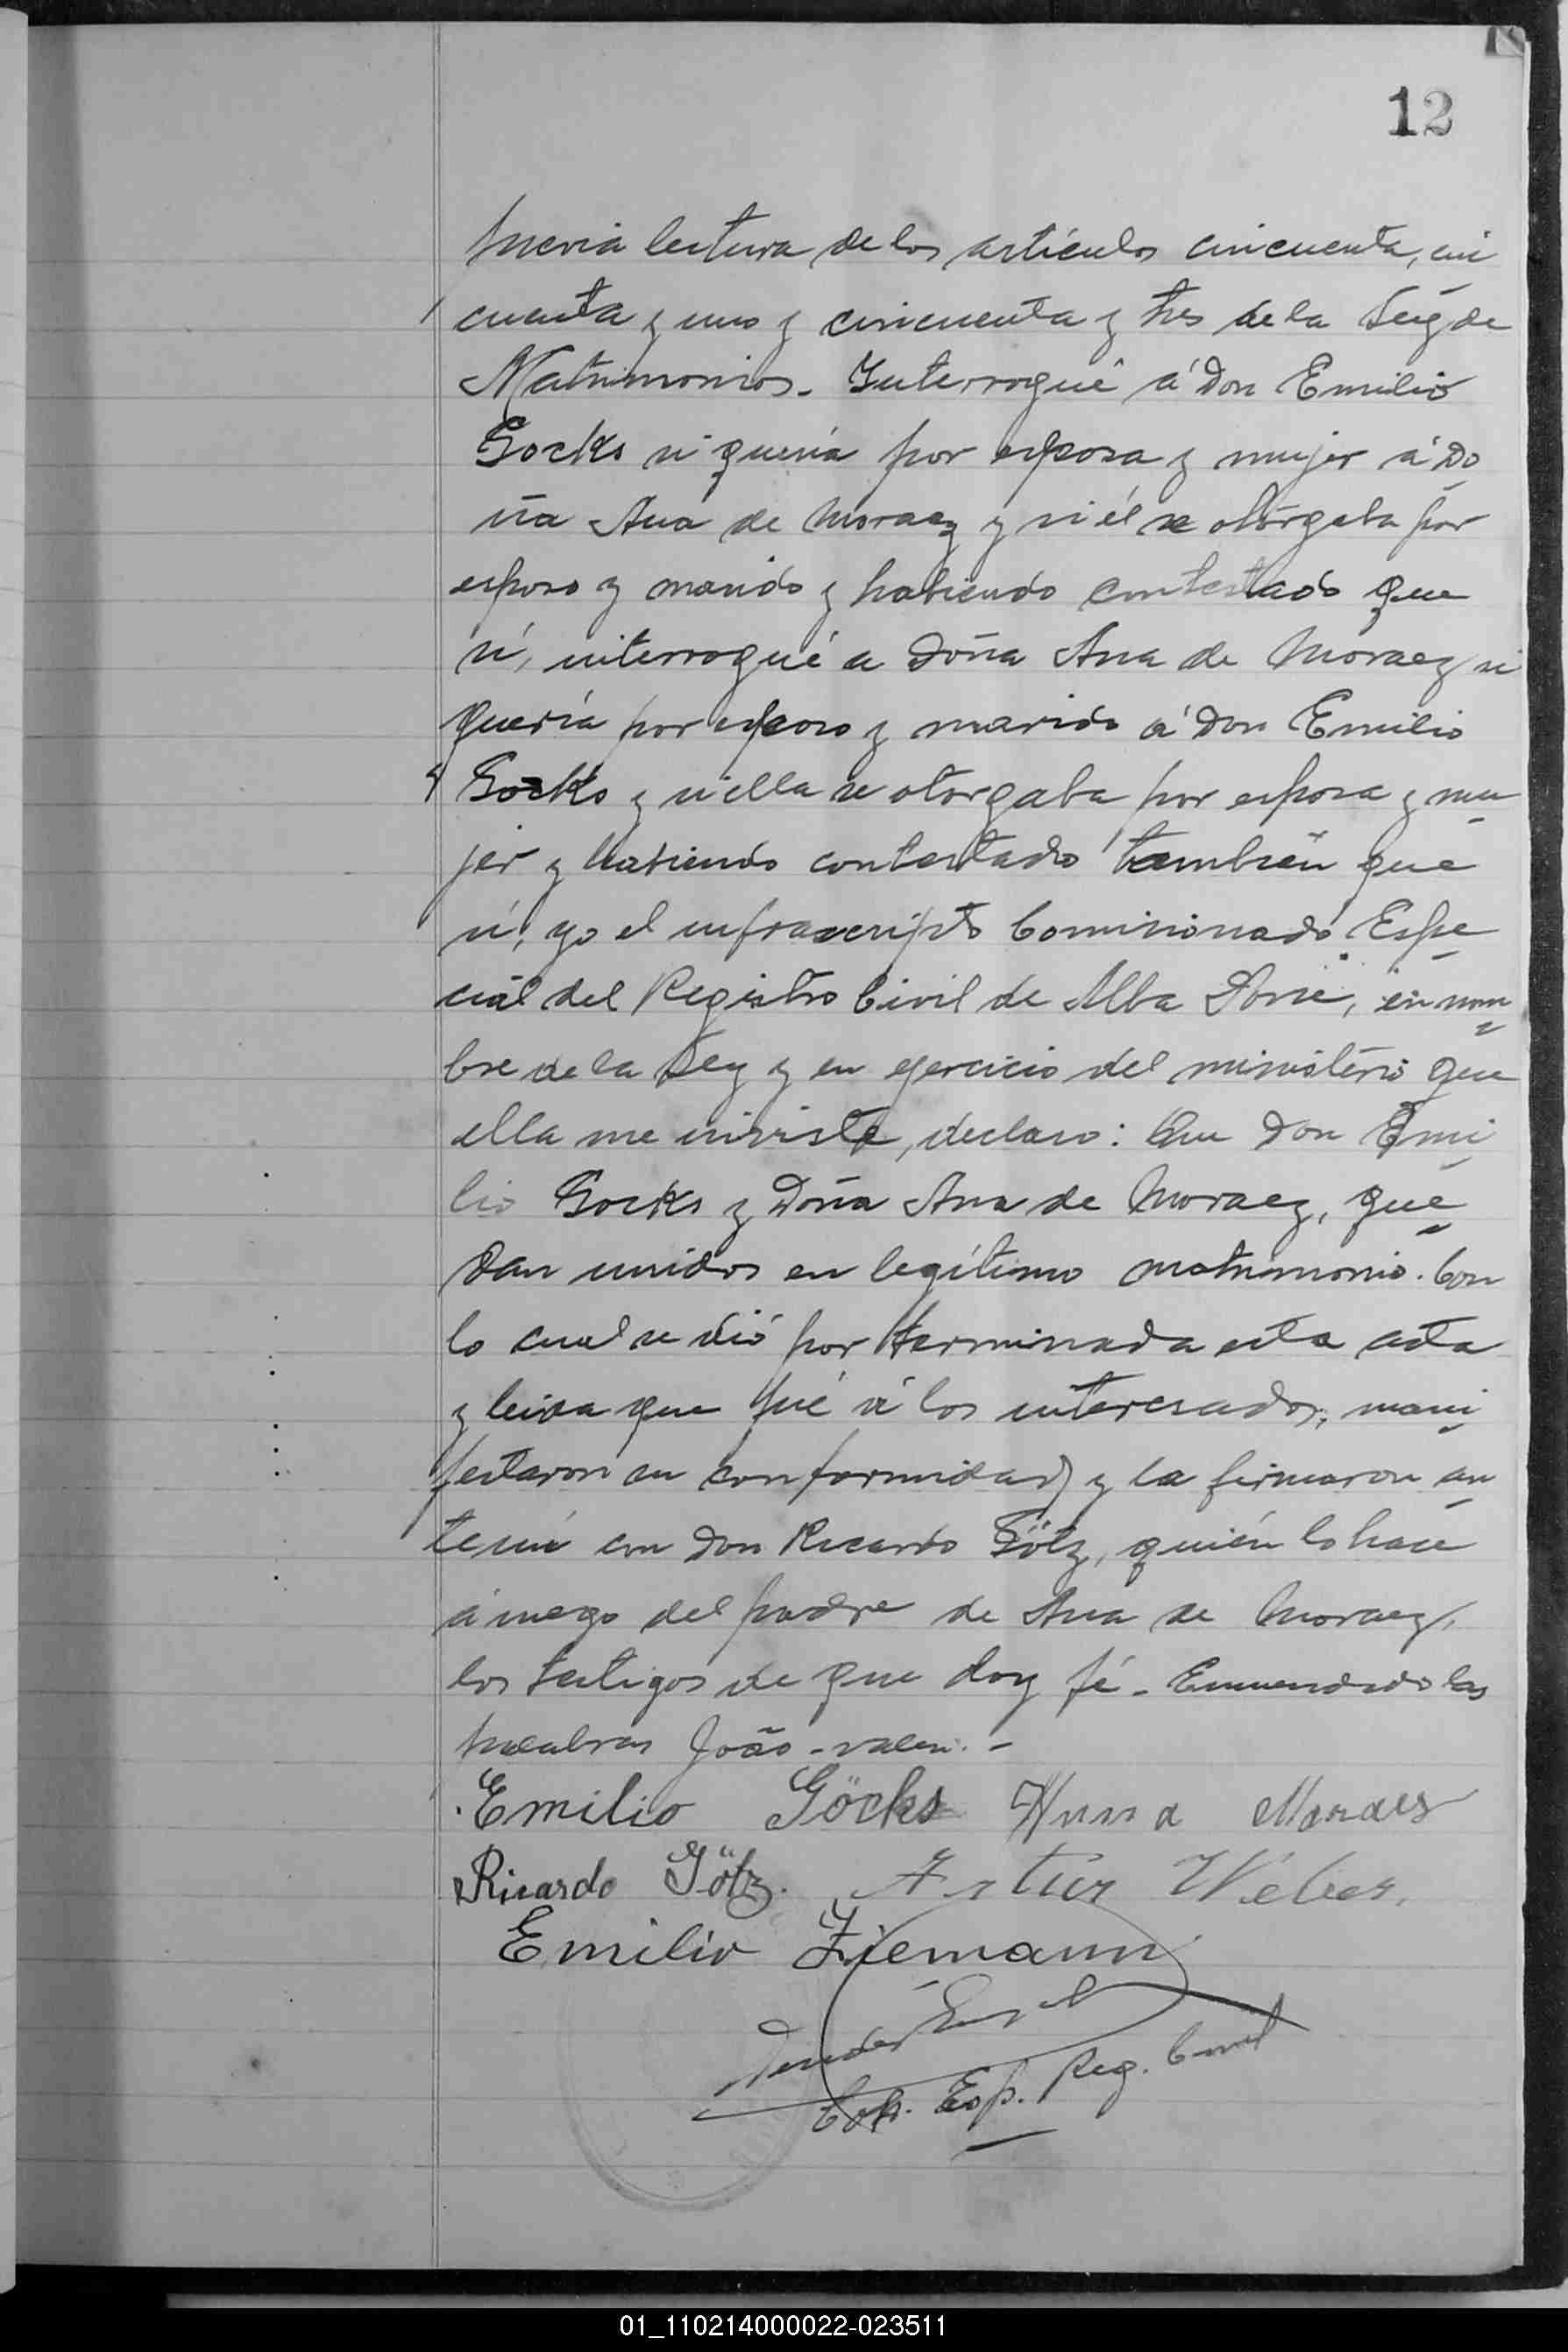 12
previa lectura de los artículos cincuenta, cin
cuenta y uno y cincuenta y tres de la Ley de
Matrimonios. Interrogué á Don Emilio
Gocks si quería por esposa y mujer á Do
ña Ana de Moraez y si él se otorgaba por
esposo y marido y habiendo contestado que
sí, interrogué a Doña Ana de Moraez si
quería por esposo y marido á Don Emilio
Gocks y si ella se otorgaba por esposa y mu
jer y habiendo contestado también que
sí, yo el infrascripto Comisionado Espe
cial del Registro Civil de Alba Posse, en nom
bre de la Ley y en ejercicio del ministerio que
ella me inviste, declaro: Que Don Emi
lio Gocks y Doña Ana de Moraez, que
dan unidos en legítimo matrimonio. Con
lo cual se dió por terminada esta acta
y leida que fué á los interesados, mani
festaron su conformidad y la firmaron an
te mí con Don Ricardo Götz, quién lo hace
á ruego del padre de Ana de Moraez,
los testigos de que doy fé. Enmendado las
palabras João - valen. -
Emilio Göcks Anna Moraes
Ricardo Götz. Artur Weber.
Emilio Ziemann
Com. Esp. Reg. Civil
01_110214000022-023511